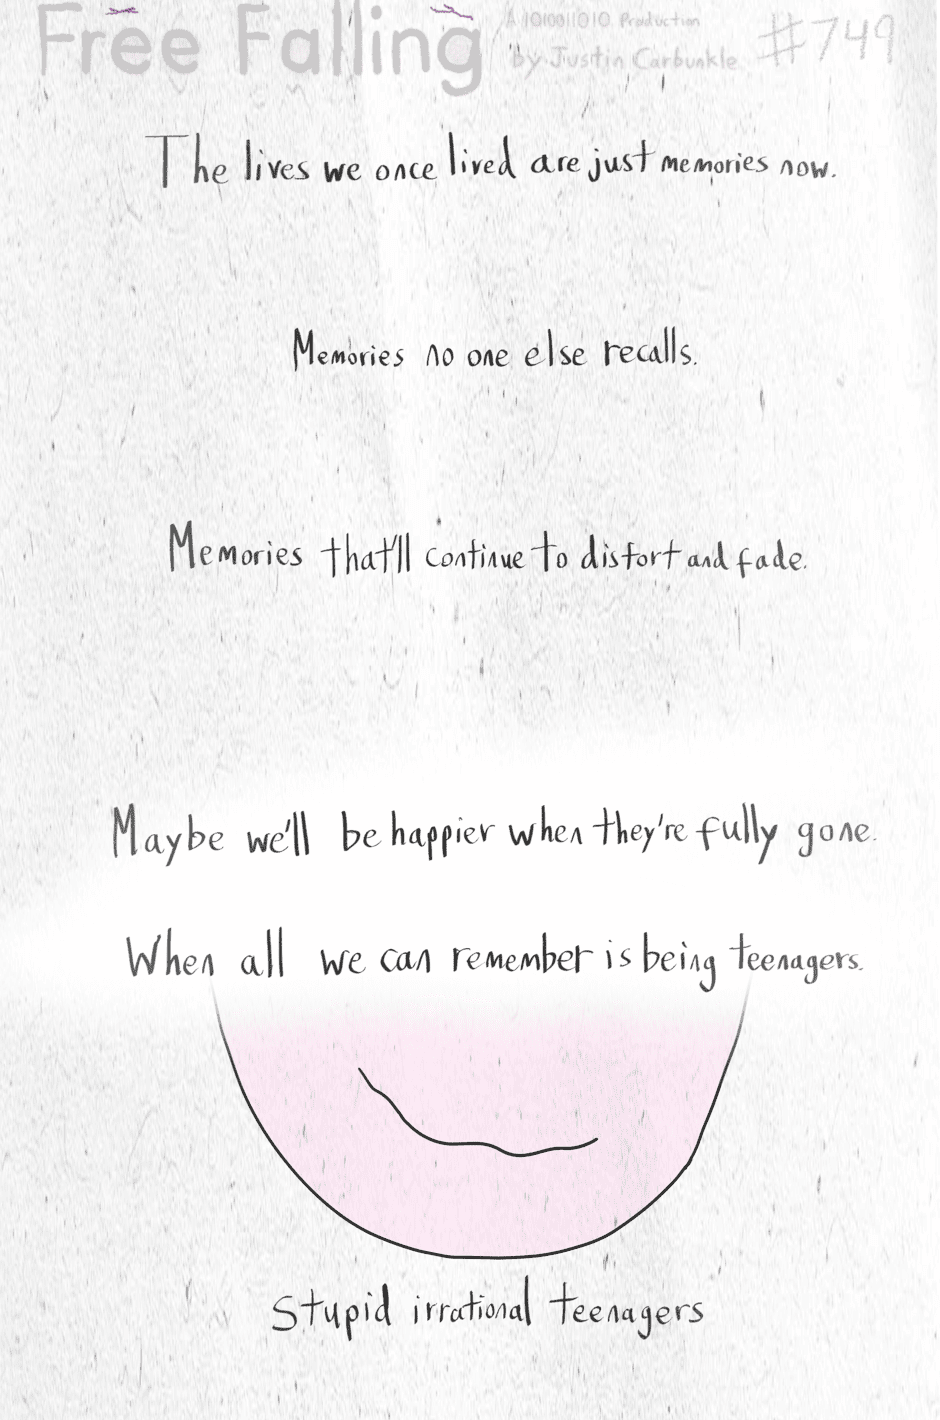 Free Falling
A 1010011010 Production
by Justin Carbunkle
#749
The lives we once lived are just memories now.
Memories no one else recalls.
Memories that'll continue to distort and fade.
Maybe we'll be happier when they're fully gone.
When all we can remember is being teenagers.
Stupid irrational teenagers